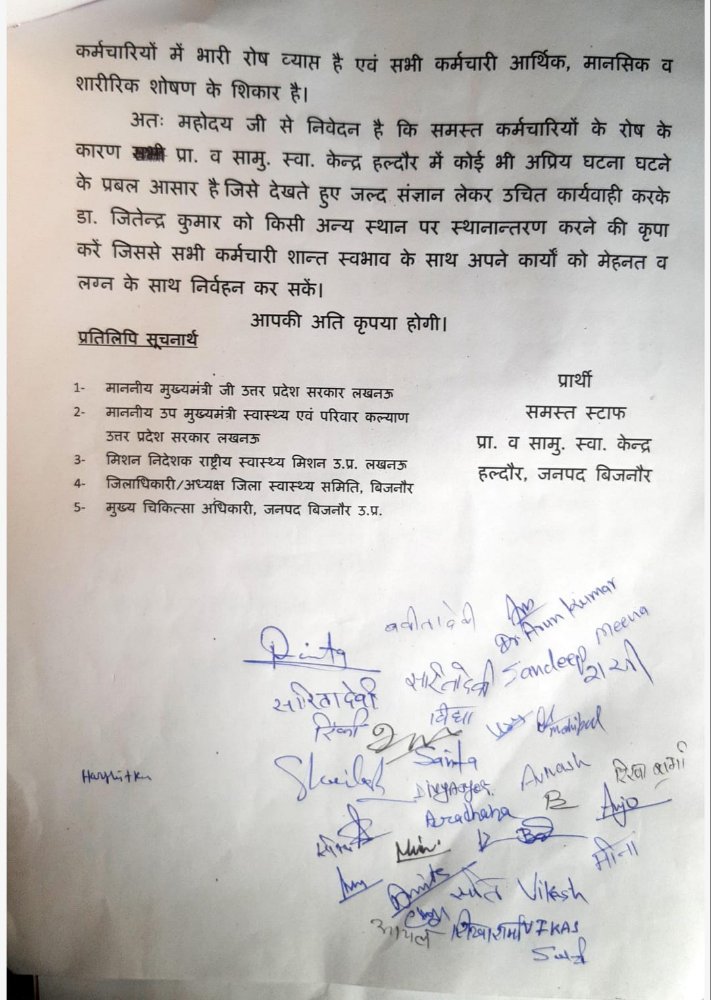 कर्मचारियों में भारी रोष व्याप्त है एवं सभी कर्मचारी आर्थिक, मानसिक व
शारीरिक शोषण के शिकार है।
अतः महोदय जी से निवेदन है कि समस्त कर्मचारियों के रोष के
कारण प्रा. व सामु. स्वा. केन्द्र हल्दौर में कोई भी अप्रिय घटना घटने
के प्रबल आसार है जिसे देखते हुए जल्द संज्ञान लेकर उचित कार्यवाही करके
डा. जितेन्द्र कुमार को किसी अन्य स्थान पर स्थानान्तरण करने की कृपा
करें जिससे सभी कर्मचारी शान्त स्वभाव के साथ अपने कार्यों को मेहनत व
लग्न के साथ निर्वहन कर सकें।
आपकी अति कृपया होगी।
प्रतिलिपि सूचनार्थ
1- माननीय मुख्यमंत्री जी उत्तर प्रदेश सरकार लखनऊ
2- माननीय उप मुख्यमंत्री स्वास्थ्य एवं परिवार कल्याण
उत्तर प्रदेश सरकार लखनऊ
3- मिशन निदेशक राष्ट्रीय स्वास्थ्य मिशन उ.प्र. लखनऊ
4- जिलाधिकारी/अध्यक्ष जिला स्वास्थ्य समिति, बिजनौर
5- मुख्य चिकित्सा अधिकारी, जनपद बिजनौर उ.प्र.
प्रार्थी
समस्त स्टाफ
प्रा. व सामु. स्वा. केन्द्र
हल्दौर, जनपद बिजनौर
बबीता देवी
Dr Arun Kumar
सारिता देवी
Sandeep Meena
सारिता देवी
रिंकी
विद्या
Sarita
Aradhana
Anjo
मीना
Vikash
शिखा शर्मा
VIKAS